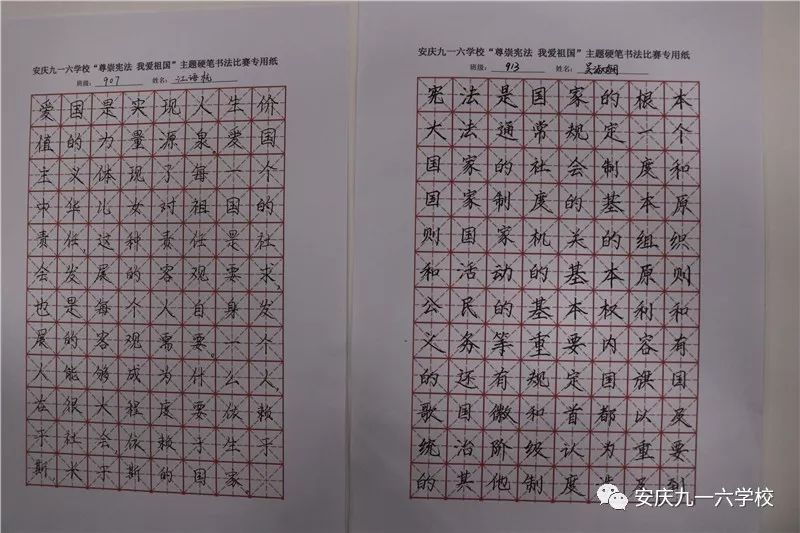 安庆九一六学校“尊崇宪法 我爱祖国”主题硬笔书法比赛专用纸
班级： 907 姓名： 江语杭
爱国是实现人生价
值的力量源泉。爱国
主义体现了每一个
中华儿女对祖国的
责任，这种责任是社
会发展的客观要求，
也是每个人自身发
展的客观需要。一个
人能够成为什么人，
在很大程度要依赖
于社会，依赖于生于
斯，长于斯的国家。
安庆九一六学校“尊崇宪法 我爱祖国”主题硬笔书法比赛专用纸
班级： 913 姓名： 吴
宪法是国家的根本
大法通常规定一个
国家的社会制度和
国家制度的基本原
则国家机关的组织
和活动的基本原则
公民的基本权利和
义务等重要内容有
的还有规定国旗国
歌国徽和首都以及
统治阶级认为重要
的其他制度涉及到
安庆九一六学校